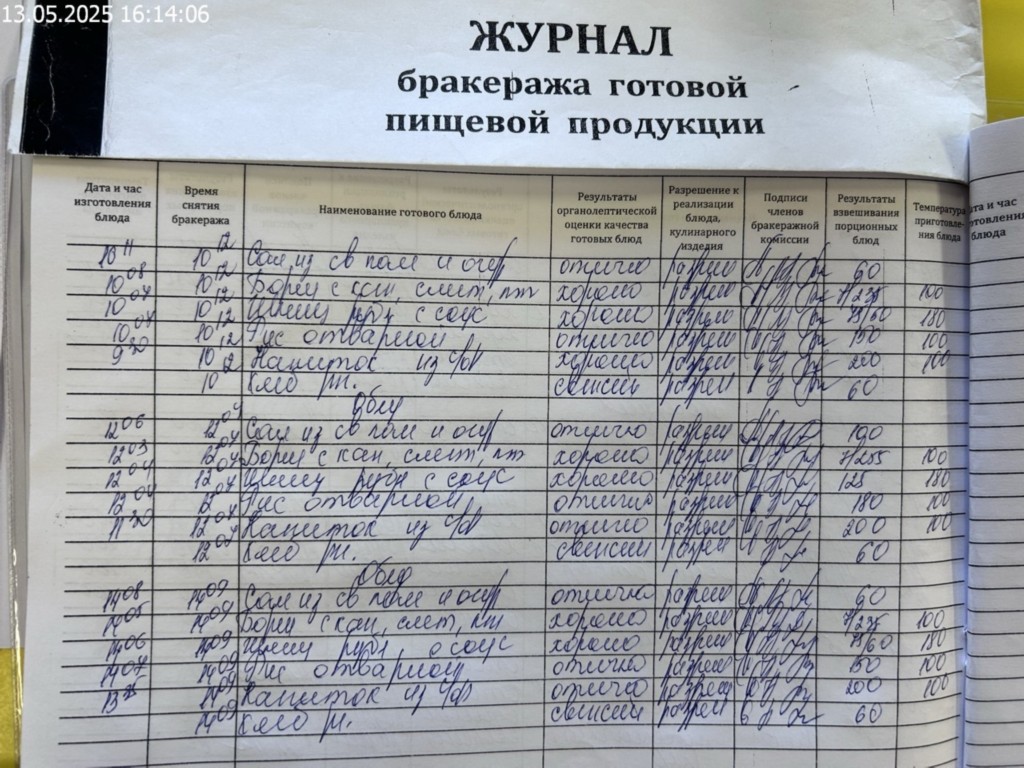 13.05.2025 16:14:06
ЖУРНАЛ
бракеража готовой
пищевой продукции
Дата и час изготовления блюда Время снятия бракеража Наименование готового блюда Результаты органолептической оценки качества готовых блюд Разрешение к реализации блюда, кулинарного изделия Подписи членов бракеражной комиссии Результаты взвешивания порционных блюд Температура приготовле- ния блюда
10 11 10 12 Сал из св пом и огур отлично разреш 60
10 08 10 12 Борщ с кап, смет, пт хорошо разреш 7/235 100
10 07 10 12 рубл с соус хорошо разреш 75/60 180
10 07 10 12 Рис отварной отлично разреш 150 100
9 30 10 12 Напиток из хорошо разреш 200 100
10 12 Хлеб рж. разреш 60
Обед
12 06 12 07 Сал из св пом и огур отлично разреш 100
12 03 12 07 Борщ с кап, смет, пт хорошо разреш 7/255 100
12 04 12 07 рубл с соус хорошо разреш 125 180
12 04 12 07 Рис отварной отлично разреш 180 100
11 30 12 07 Напиток из отлично разреш 200 100
12 07 Хлеб рж. разреш 60
Обед
14 08 14 09 Сал из св пом и огур отлично разреш 60
14 05 14 09 Борщ с кап, смет, пт хорошо разреш 7/235 100
14 06 14 09 рубл с соус хорошо разреш 75/60 180
14 07 14 09 Рис отварной отлично разреш 150 100
14 09 Напиток из отлично разреш 200 100
14 09 Хлеб рж. разреш 60